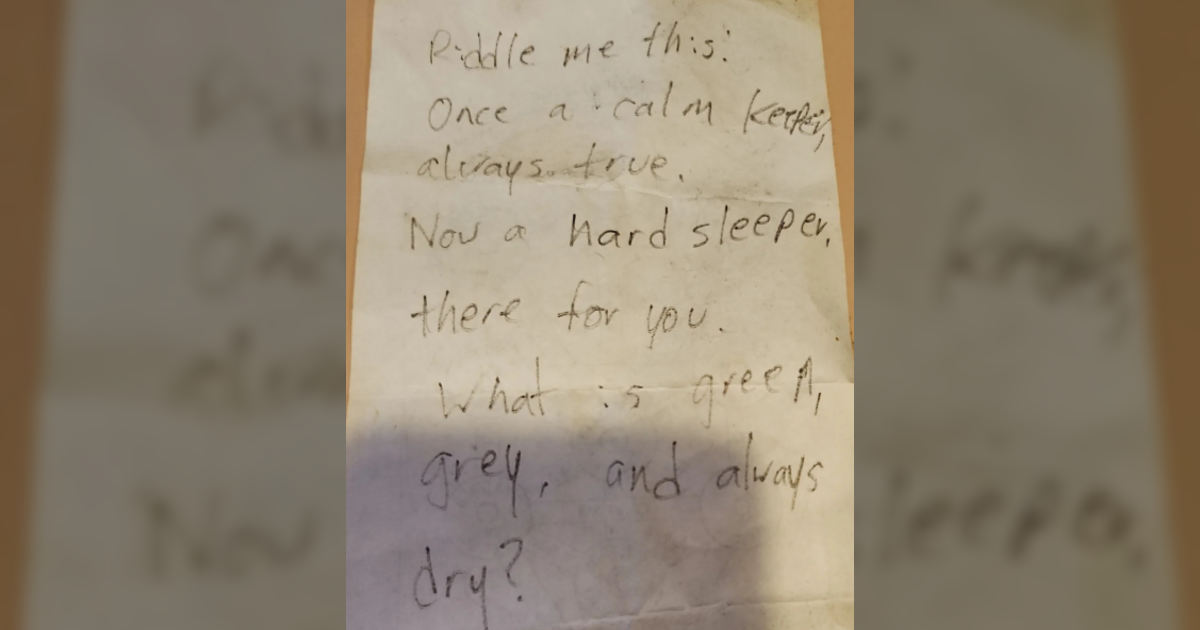 Riddle me this:
Once a calm keeper,
always true.
Now a hard sleeper,
there for you.
What is green,
grey, and always
dry?